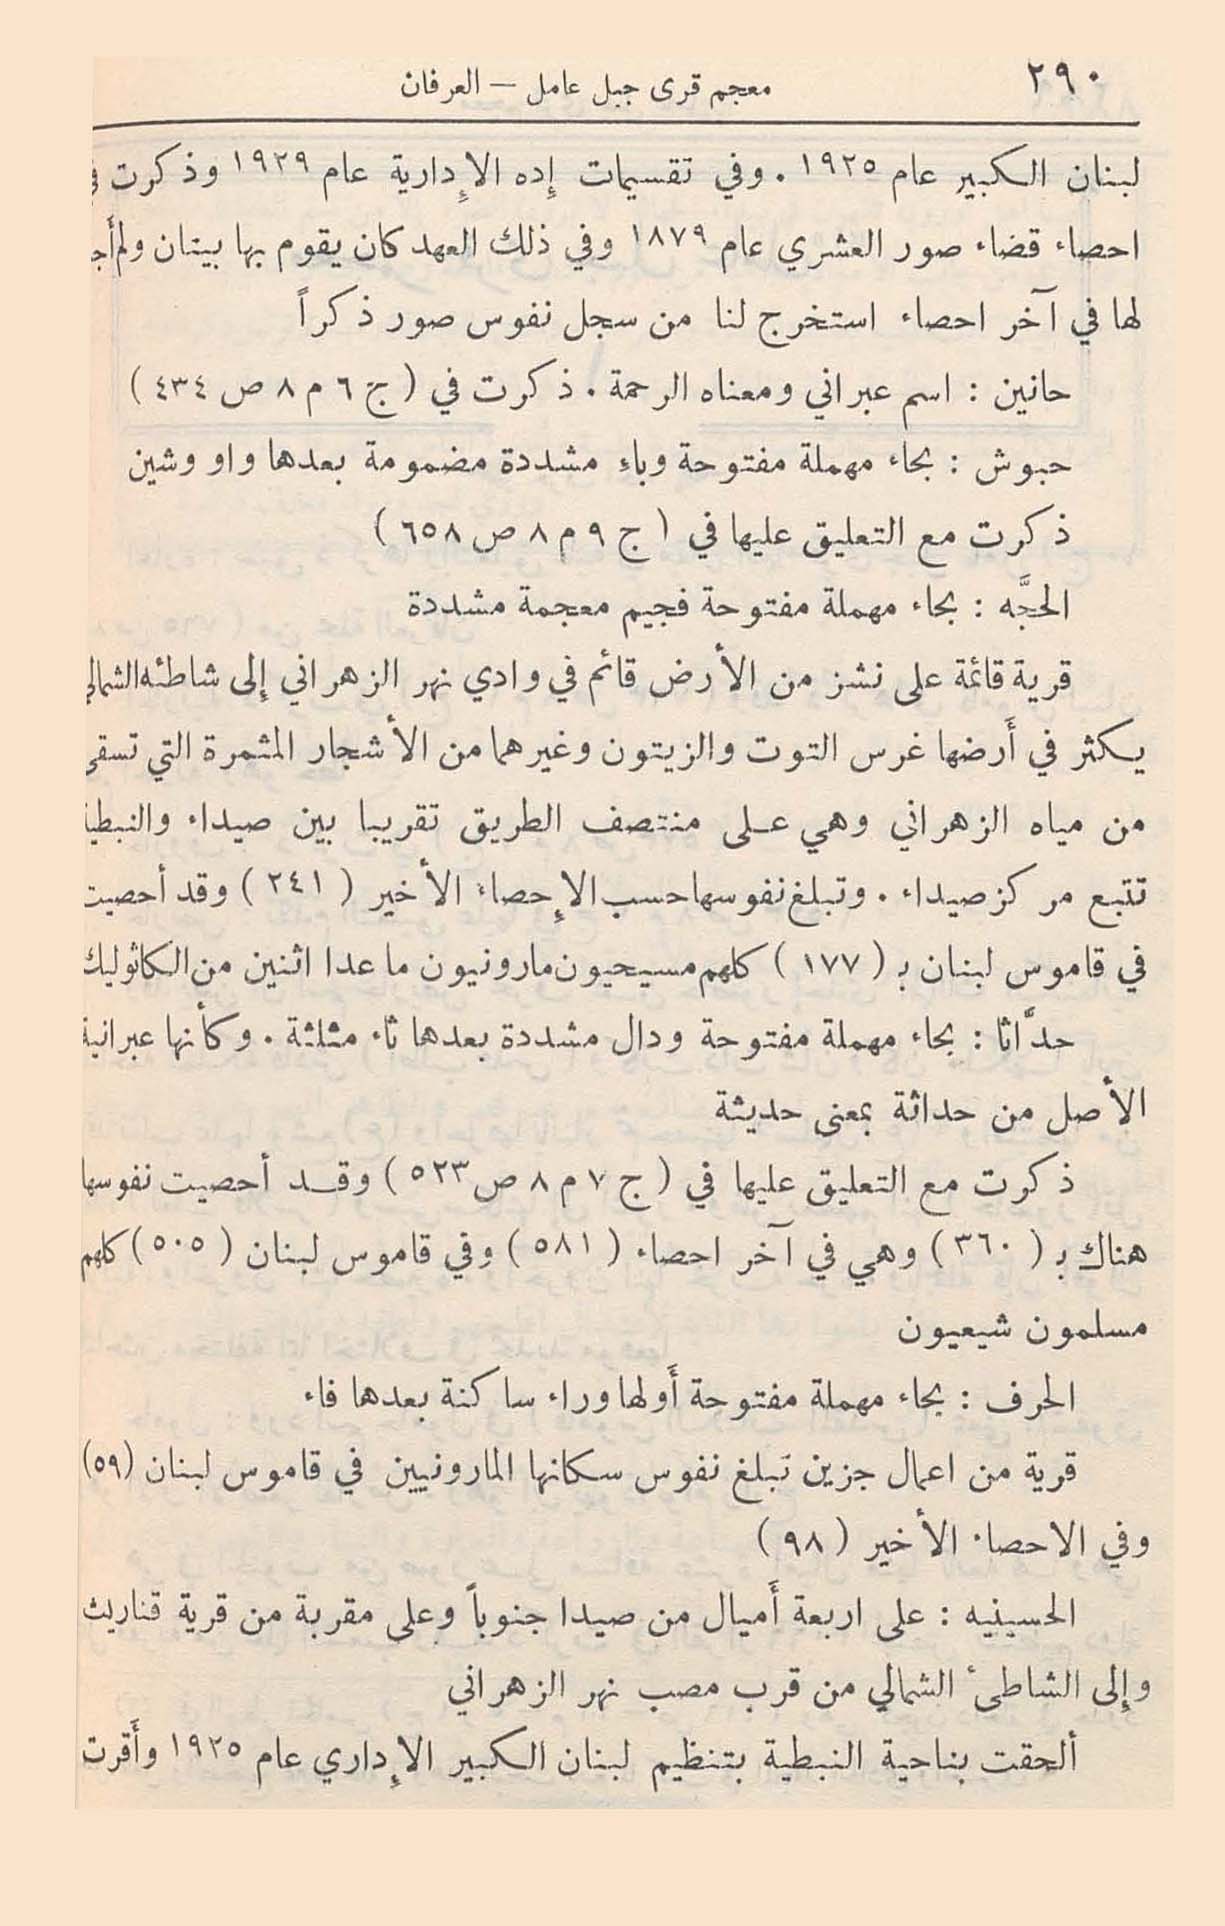 ٢٩٠
معجم قرى جبل عامل — العرفان
لبنان الكبير عام ١٩٢٥ . وفي تقسيمات إده الاإدارية عام ١٩٢٩ وذكرت في
احصاء قضاء صور العشري عام ١٨٧٩ وفي ذلك العهد كان يقوم بها بيتان ولم أجد
لها في آخر احصاء استخرج لنا من سجل نفوس صور ذكراً
حانين : اسم عبراني ومعناه الرحمة . ذكرت في ( ج ٦ م ٨ ص ٤٣٤ )
حبوش : بحاء مهملة مفتوحة وباء مشددة مضمومة بعدها واو وشين
ذكرت مع التعليق عليها في ( ج ٩ م ٨ ص ٦٥٨ )
الحجَّه : بحاء مهملة مفتوحة فجيم معجمة مشددة
قرية قائمة على نشز من الأرض قائم في وادي نهر الزهراني إلى شاطئه الشمالي
يكثر في أَرضها غرس التوت والزيتون وغيرهما من الأشجار المثمرة التي تسقى
من مياه الزهراني وهي على منتصف الطريق تقريبا بين صيداء والنبطية
تتبع مركز صيداء . وتبلغ نفوسها حسب الإحصاء الأخير ( ٢٤١ ) وقد أحصيت
في قاموس لبنان بـ ( ١٧٧ ) كلهم مسيحيون مارونيون ما عدا اثنين من الكاثوليك
حدَّاثا : بحاء مهملة مفتوحة ودال مشددة بعدها ثاء مثلثة . وكأنها عبرانية
الأصل من حداثة بمعنى حديثة
ذكرت مع التعليق عليها في ( ج ٧ م ٨ ص ٥٢٣ ) وقد أحصيت نفوسها
هناك بـ ( ٣٦٠ ) وهي في آخر احصاء ( ٥٨١ ) وفي قاموس لبنان ( ٥٠٥ ) كلهم
مسلمون شيعيون
الحرف : بحاء مهملة مفتوحة أَولها وراء ساكنة بعدها فاء
قرية من اعمال جزين تبلغ نفوس سكانها المارونيين في قاموس لبنان (٥٩)
وفي الاحصاء الأخير ( ٩٨ )
الحسينيه : على اربعة أَميال من صيدا جنوباً وعلى مقربة من قرية قناريث
وإلى الشاطئ الشمالي من قرب مصب نهر الزهراني
ألحقت بناحية النبطية بتنظيم لبنان الكبير الإداري عام ١٩٢٥ وأَقرت